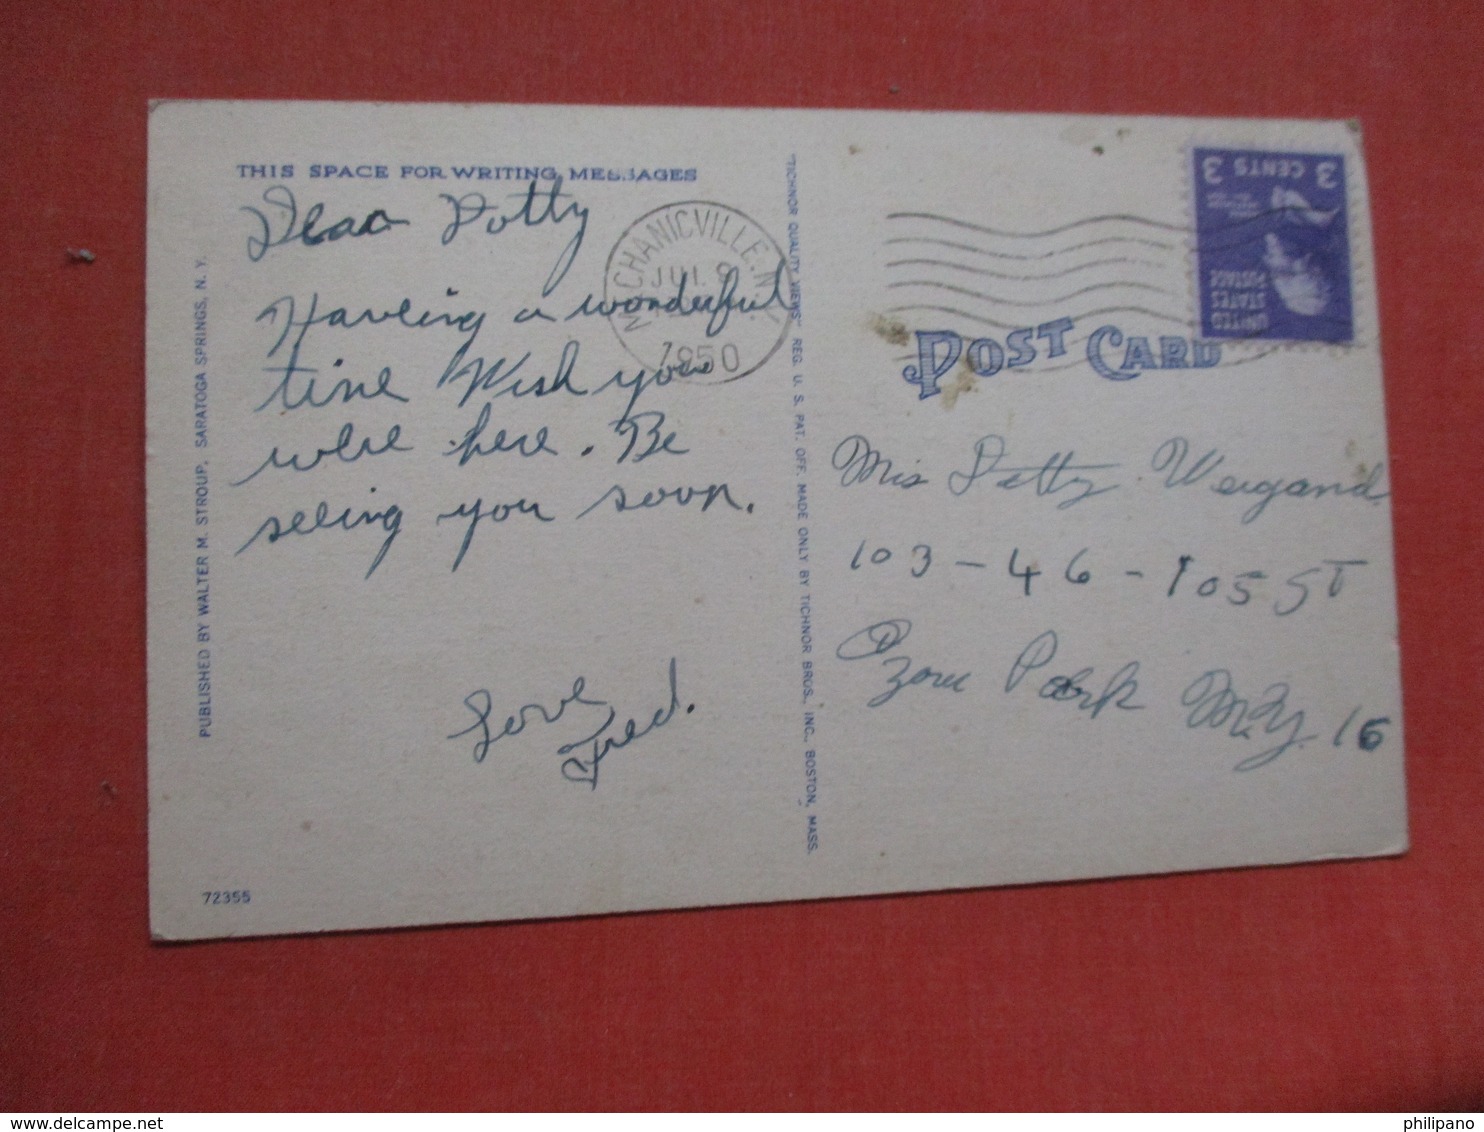 THIS SPACE FOR WRITING MESSAGES
Dear Patty
Having a wonderful
time Wish you
were here. Be
seeing you soon.
Love
Fred.
MECHANICVILLE, N.Y.
JUL 9
1950
3 CENTS 3
UNITED
STATES
POSTAGE
POST CARD
Miss Patty Weigand
103-46-105 ST
Ozone Park N.Y. 16
PUBLISHED BY WALTER M. STROUP, SARATOGA SPRINGS, N. Y.
"TICHNOR QUALITY VIEWS" REG. U. S. PAT. OFF. MADE ONLY BY TICHNOR BROS., INC., BOSTON, MASS.
72355
philipano